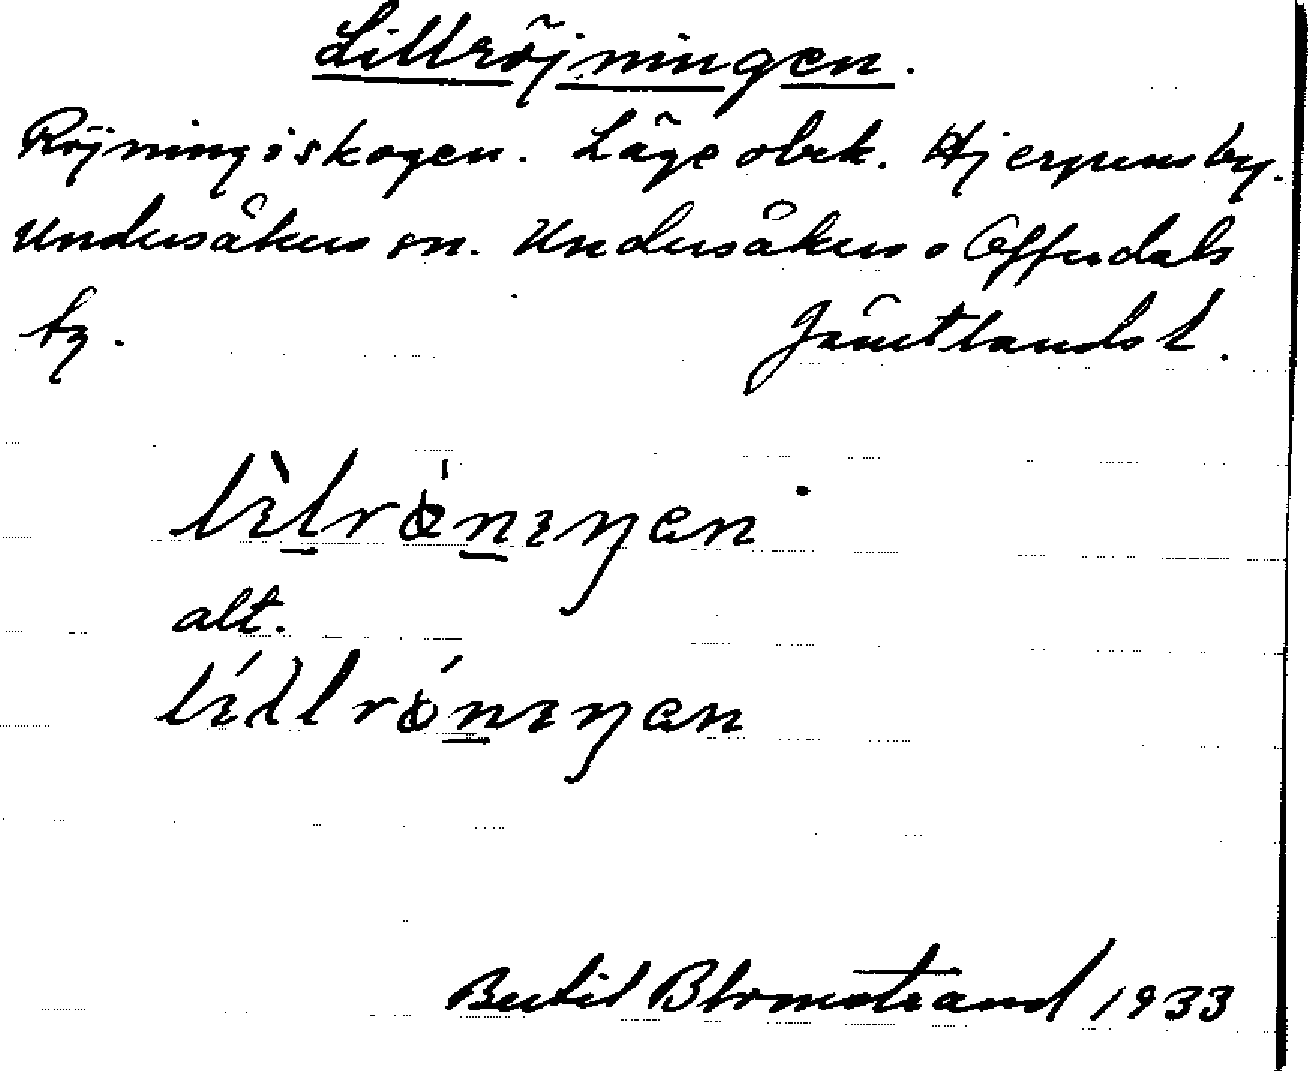 Lillröjningen.
Röjning i skogen. Läge obek. Hjerpens by.
Undersåkers sn. Undersåkers o Offerdals
tg. Jämtlands l.
alt.
Bertil Blomstrand 1933